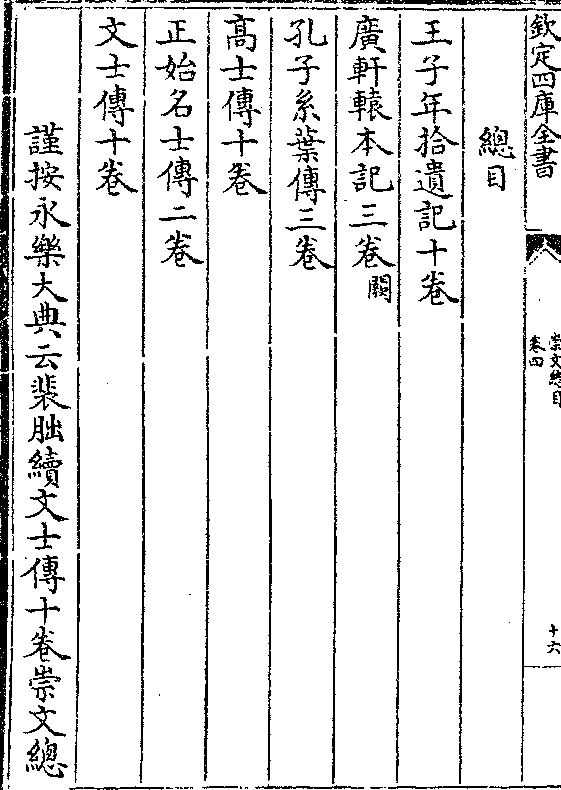 欽定四庫全書
崇文總目
卷四
十六
總目
王子年拾遺記十卷
廣軒轅本記三卷闕
孔子系葉傳三卷
高士傳十卷
正始名士傳二卷
文士傳十卷
謹按永樂大典云裴朏續文士傳十卷崇文總